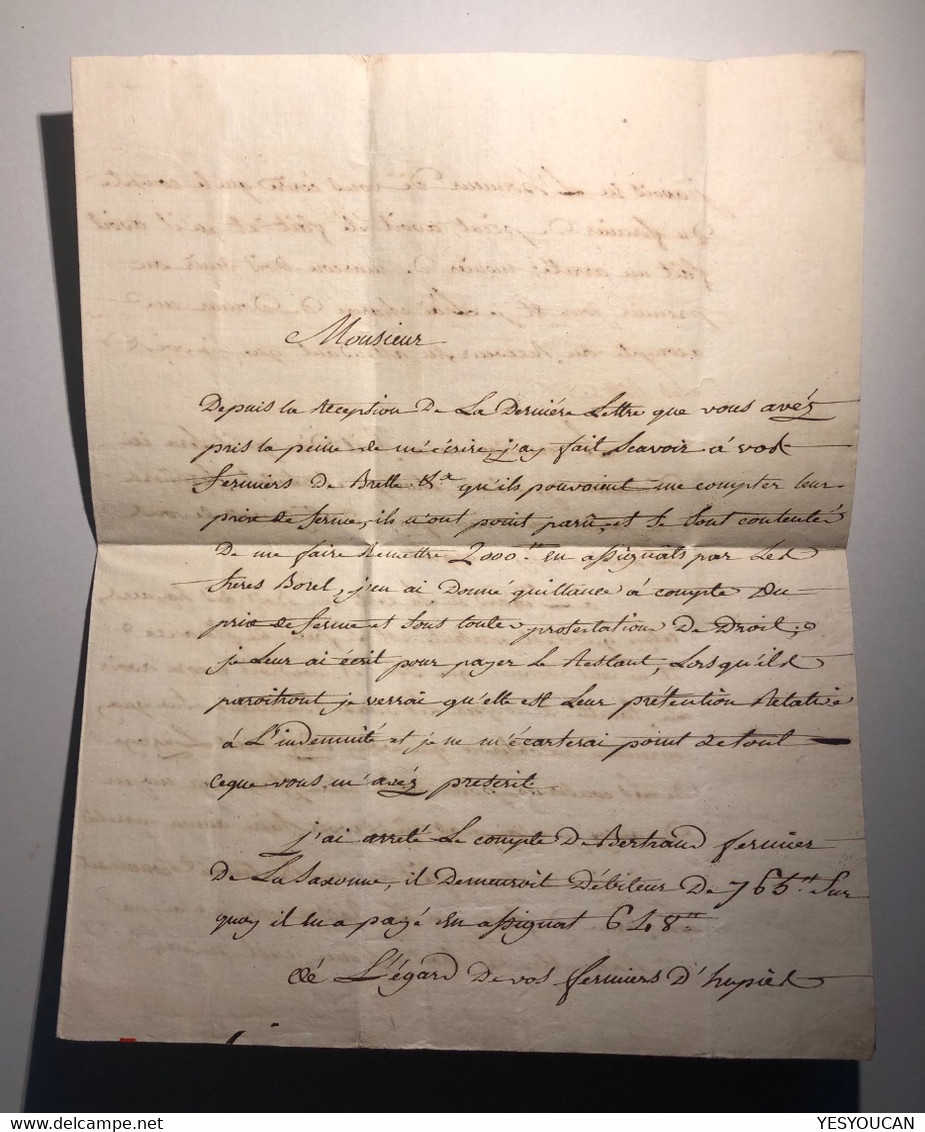 Monsieur
Depuis la Réception De La Derniére Lettre que vous avéz
pris la peine de m'écrire, j'ay fait Scavoir á vos
fermiers De Brette &a qu'ils pouvoient me compter leur
prix de ferme, ils n'ont point parû, et Se Sont contentés
De me faire Remettre 2000tt en assignats par Les
freres Borel, j'en ai Donné quittance á compte Du
prix de ferme et Sous toutes protestations De Droit;
je Leur ai écrit pour payer Le Restant, Lorsqu'ils
paroitront je verrai qu'elle est Leur prétention Relative
á L'indemnité et je ne m'écarterai point de tout
ceque vous m'avéz prescrit.
j'ai arrété Le compte De Bertrand fermier
De La Saxonne, il Demeuroit Débiteur De 765tt Sur
quoy il en a payé en assignat 648tt
á L'égard De vos fermiers D'
YESYOUCAN